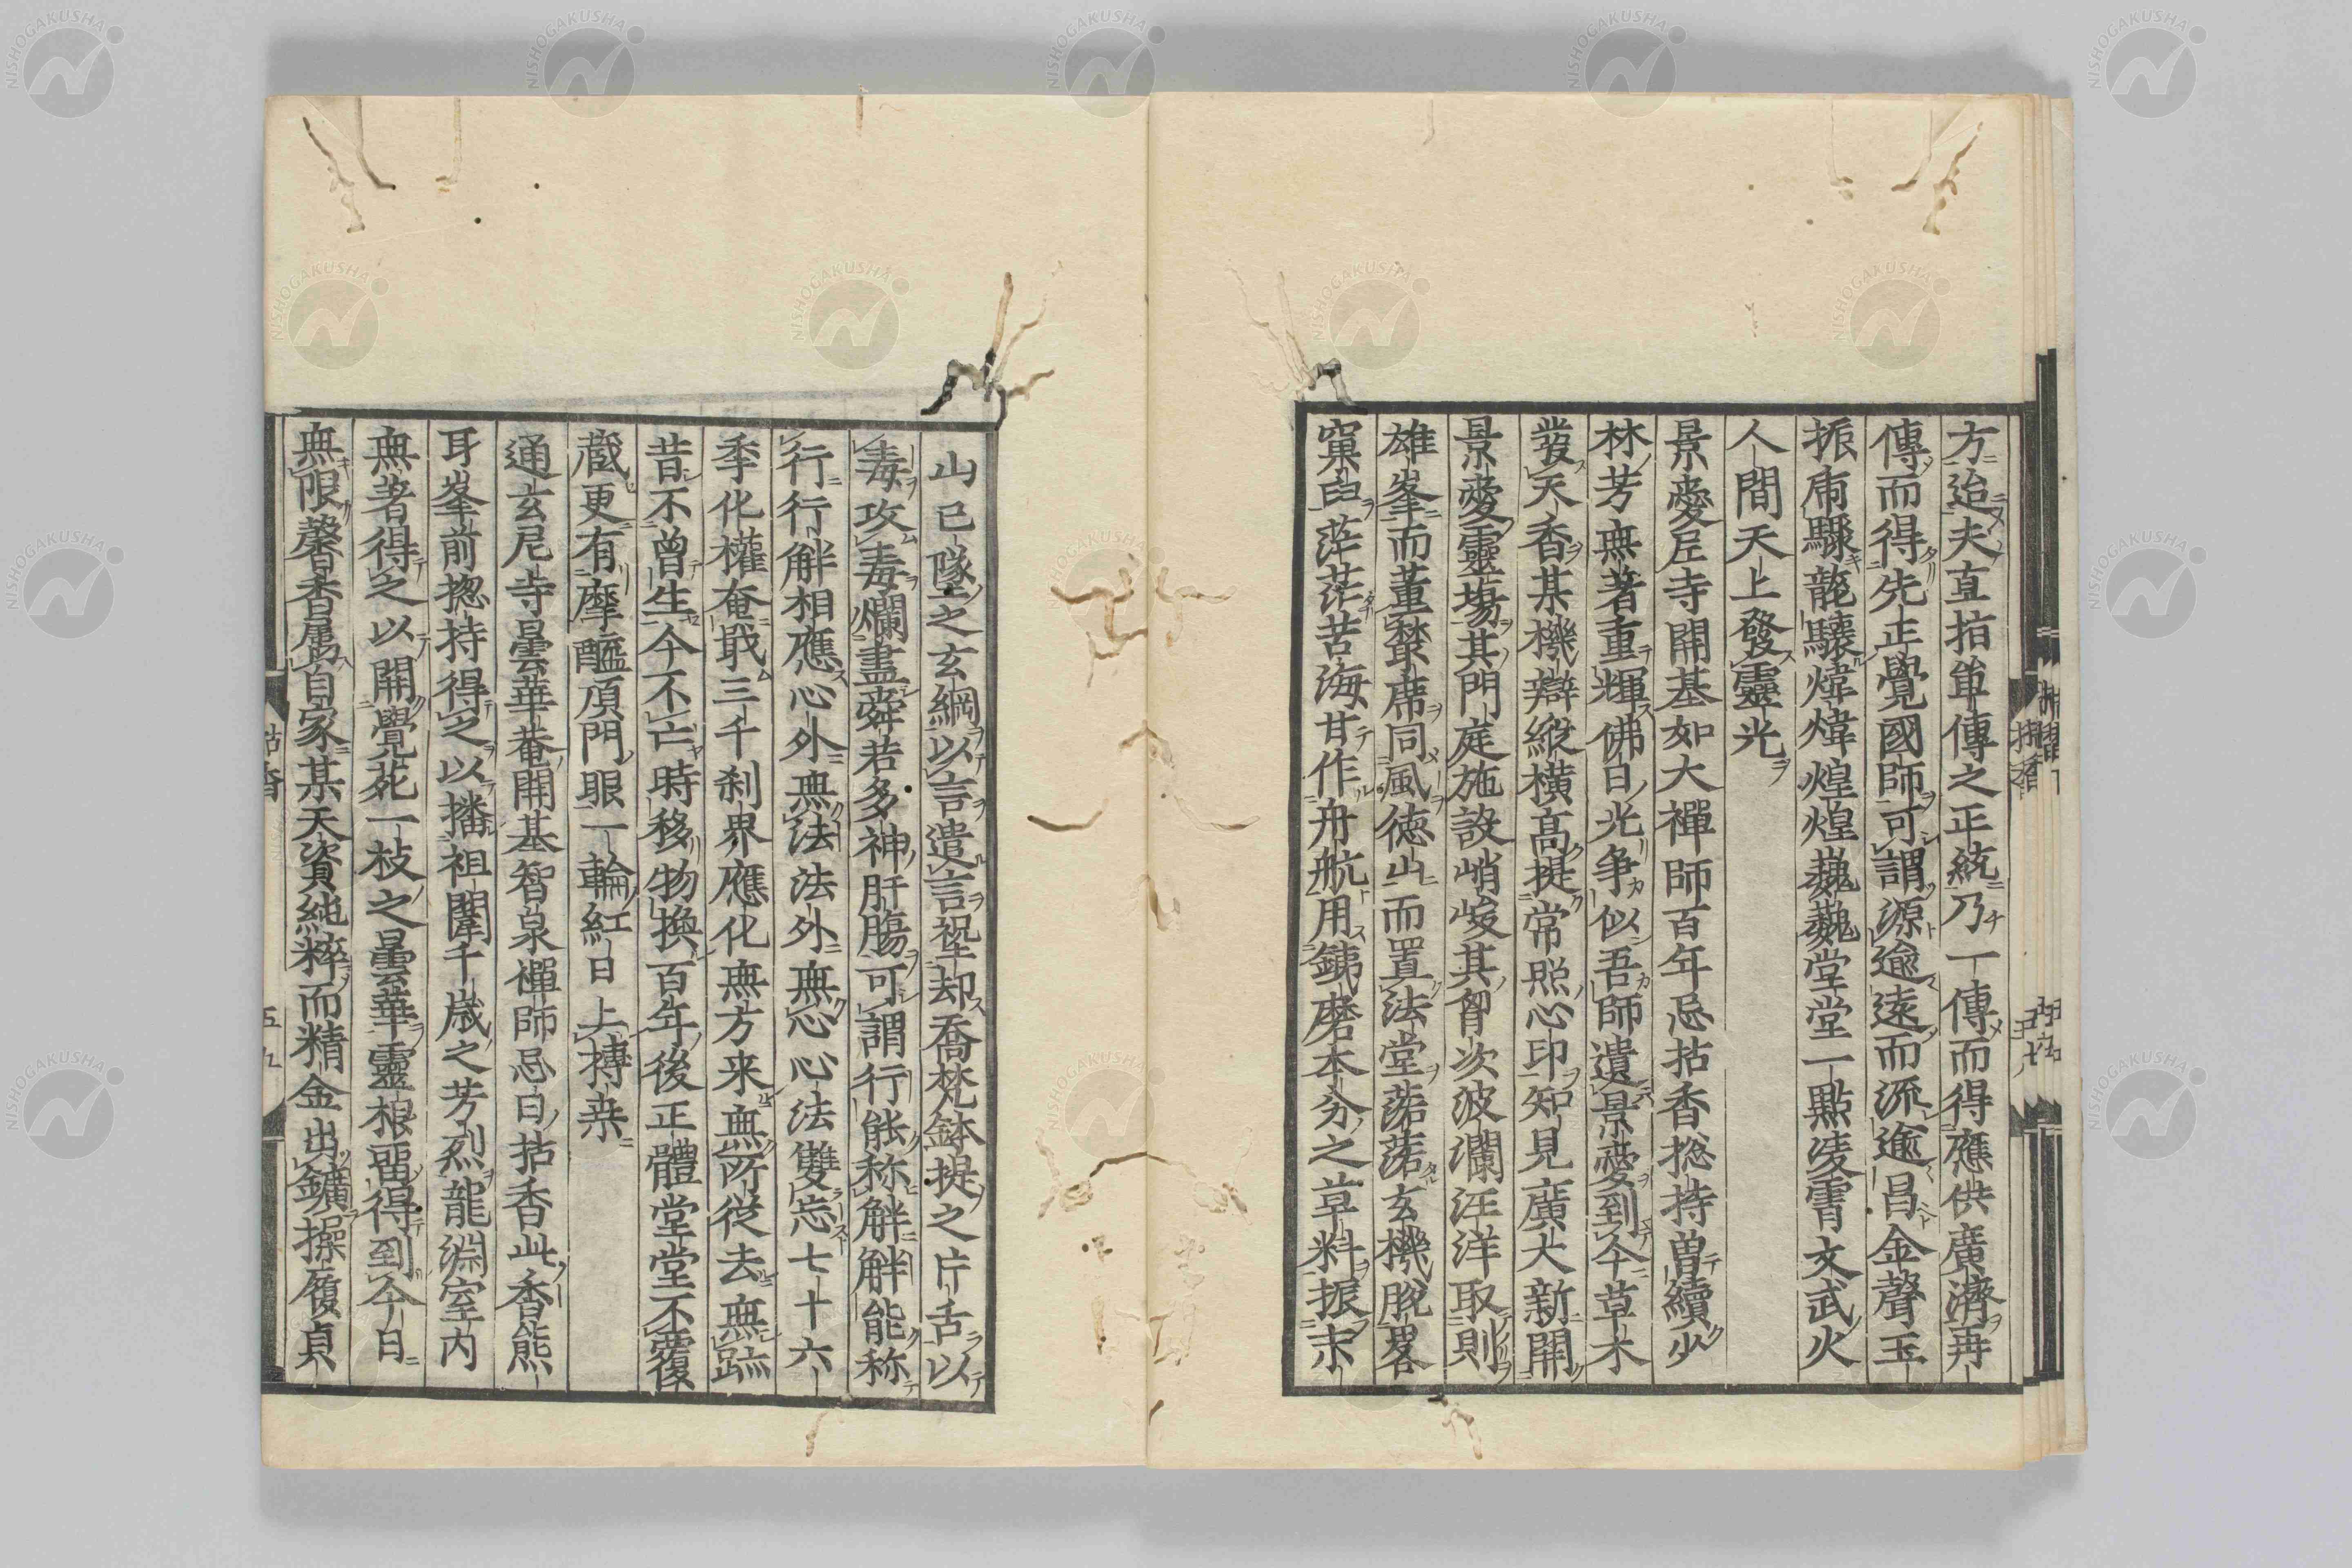 方迨夫直指單傳之正統乃一傳而得應供廣濟再
傳而得先正覺國師可謂源逾遠而流逾昌金聲玉
振虎驟龍驤煒煒煌煌巍巍堂堂一點凌霄文武火
人間天上發靈光
景愛尼寺開基如大禪師百年忌拈香捴持曽續少
林芳無著重輝佛日光争似吾師遺景愛到今草木
發天香某機辯縱橫髙提常照心印知見廣大新開
景愛靈場其門庭施設峭峻其胷次波瀾汪洋取則
雄峯而董叢席同風德山而置法堂落落玄機脫畧
窠臼茫茫苦海甘作舟航用銕磨本分之草料振末
山已墜之玄綱以言遣言裂却喬梵鉢提之片舌以
毒攻毒爛盡舜若多神肝膓可謂行能称解解能称
行行解相應心外無法法外無心心法雙忘七十六
季化權奄戢三千刹界應化無方来無所從去無跡
昔不曽生今不亡時移物換百年後正體堂堂不覆
蔵更有摩醯頂門眼一輪紅日上搏桒
通玄尼寺曇華菴開基智泉禪師忌日拈香此香熊
耳峯前捴持得之以播祖闈千歳之芳烈龍淵室内
無著得之以開覺苑一枝之曇華靈根畱得到今日
無限馨香属自家某天資純粹而精金出鑛操履貞
NISHOGAKUSHA